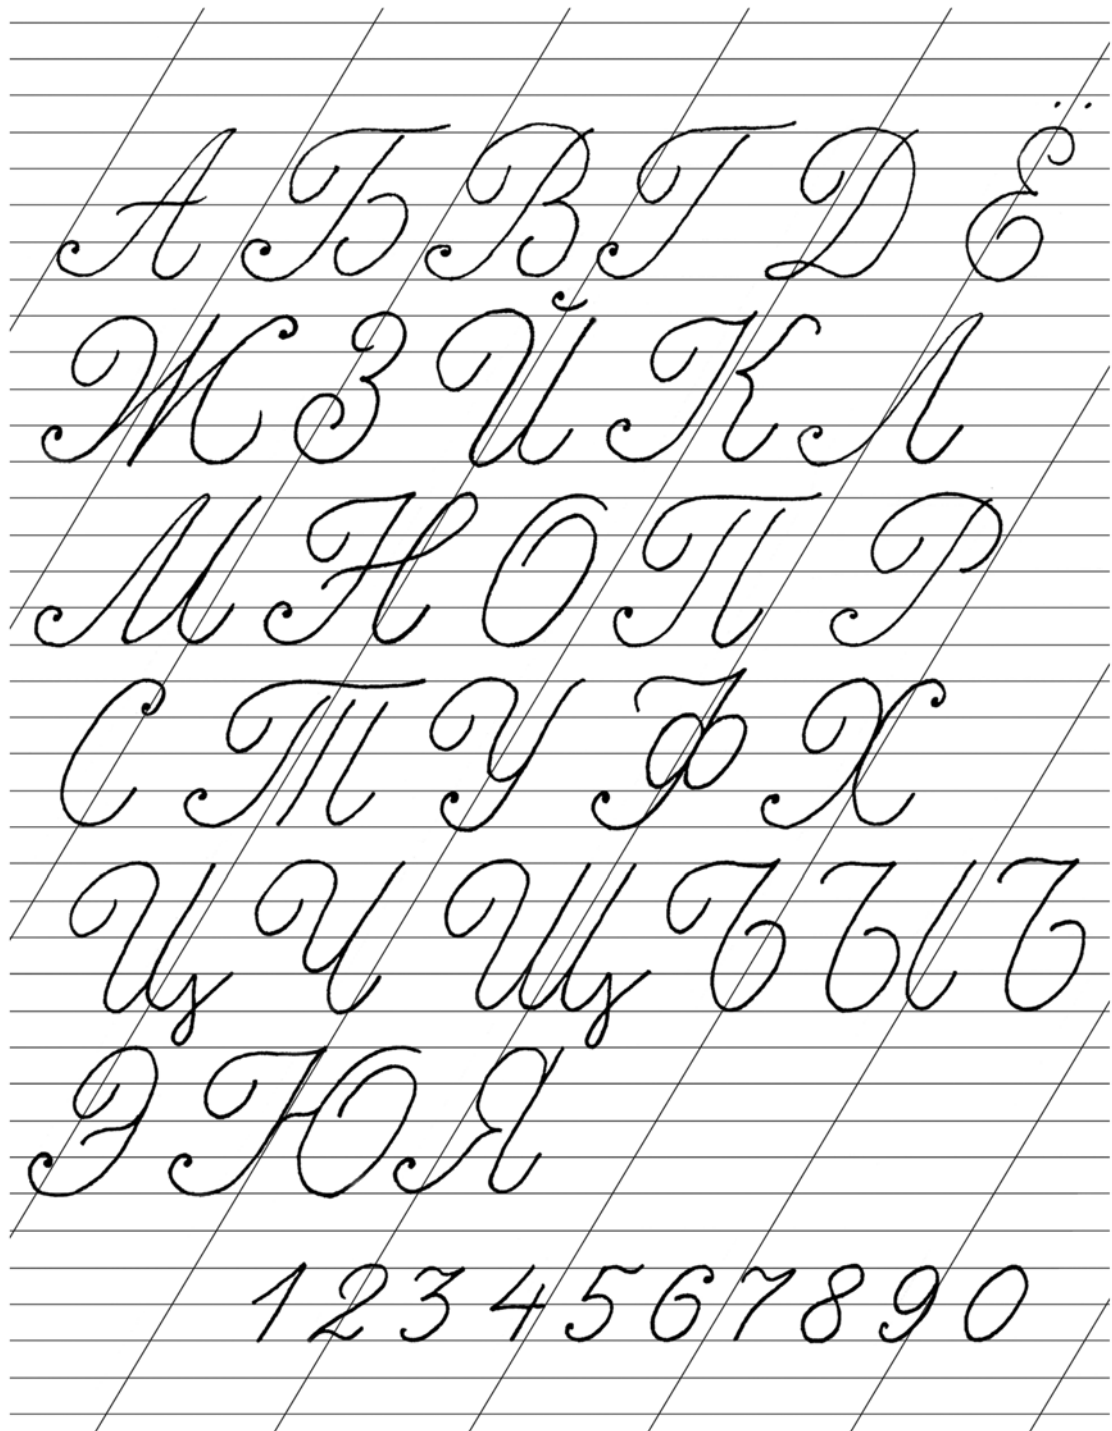 А Б В Г Д Ё
Ж З Й К Л
М Н О П Р
С Т У Ф Х
Ц Ч Щ Ъ Ы Ь
Э Ю Я
1 2 3 4 5 6 7 8 9 0